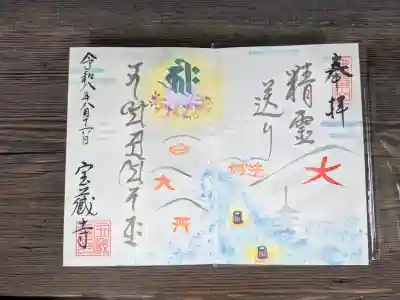 奉拝
精霊
送り
大
妙法
大
令和八年八月十六日
宝蔵寺